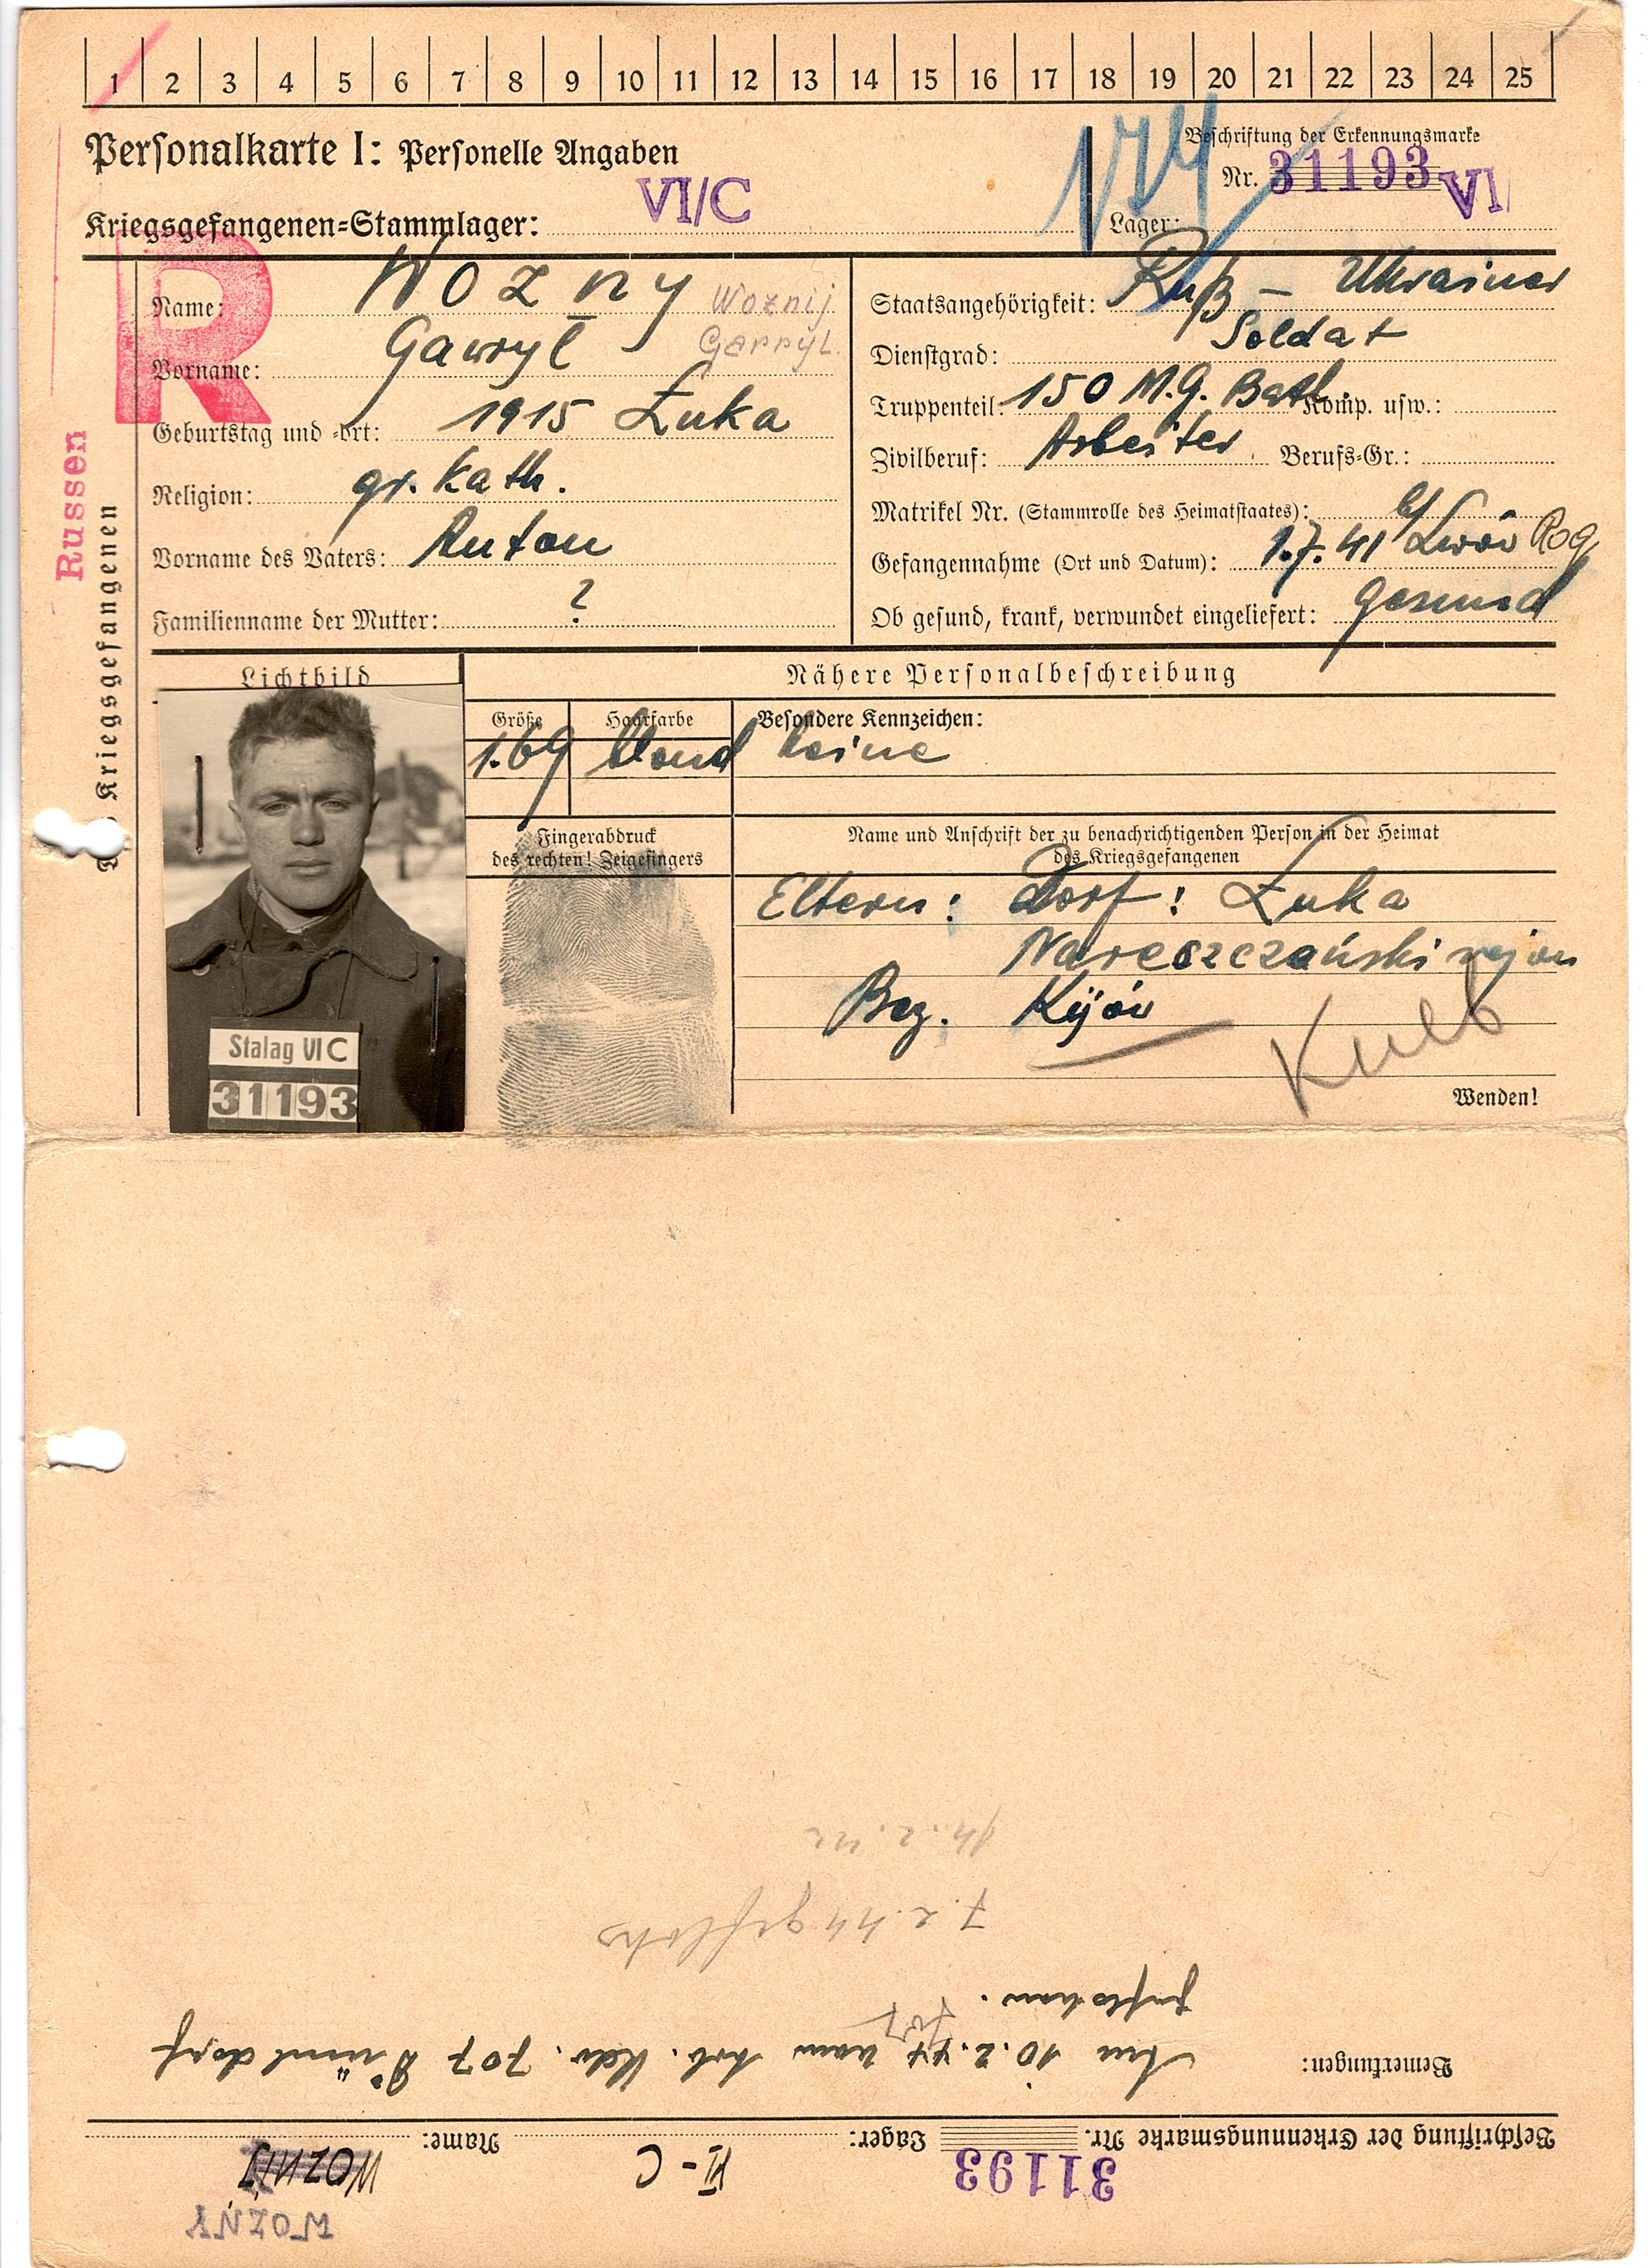 1 2 3 4 5 6 7 8 9 10 11 12 13 14 15 16 17 18 19 20 21 22 23 24 25
Personalkarte I: Personelle Angaben
Kriegsgefangenen-Stammlager: VI/C
Beschriftung der Erkennungsmarke
Nr. 31193 VI
Lager:
R
Russen
Kriegsgefangenen
Name: Wozny Woznij
Vorname: Gawryl
Geburtstag und -ort: 1915 Łuka
Religion: gr. kath.
Vorname des Vaters: Anton
Familienname der Mutter: ?
Staatsangehörigkeit: Ruß – Ukrainer
Dienstgrad: Soldat
Truppenteil: 150 M.G. Batl. Komp. usw.:
Zivilberuf: Arbeiter Berufs-Gr.:
Matrikel Nr. (Stammrolle des Heimatstaates):
Gefangennahme (Ort und Datum): 1.7.41 b/ Lwów
Ob gesund, krank, verwundet eingeliefert: gesund
Lichtbild
Nähere Personalbeschreibung
Größe Haarfarbe Besondere Kennzeichen:
1.69 blond keine
Fingerabdruck
des rechten! Zeigefingers
Name und Anschrift der zu benachrichtigenden Person in der Heimat
des Kriegsgefangenen
Eltern: Dorf: Łuka
rejon
Bez. Kijów
Киев
Wenden!
Stalag VI C
31193
Beschriftung der Erkennungsmarke Nr. 31193 Lager: VI-C Name: WOZNIJ
WOZNY
Bemerkungen: Am 10.2.44 vom Arb. Kdo. 707
geflohen.
707
7.2.44 geflohen